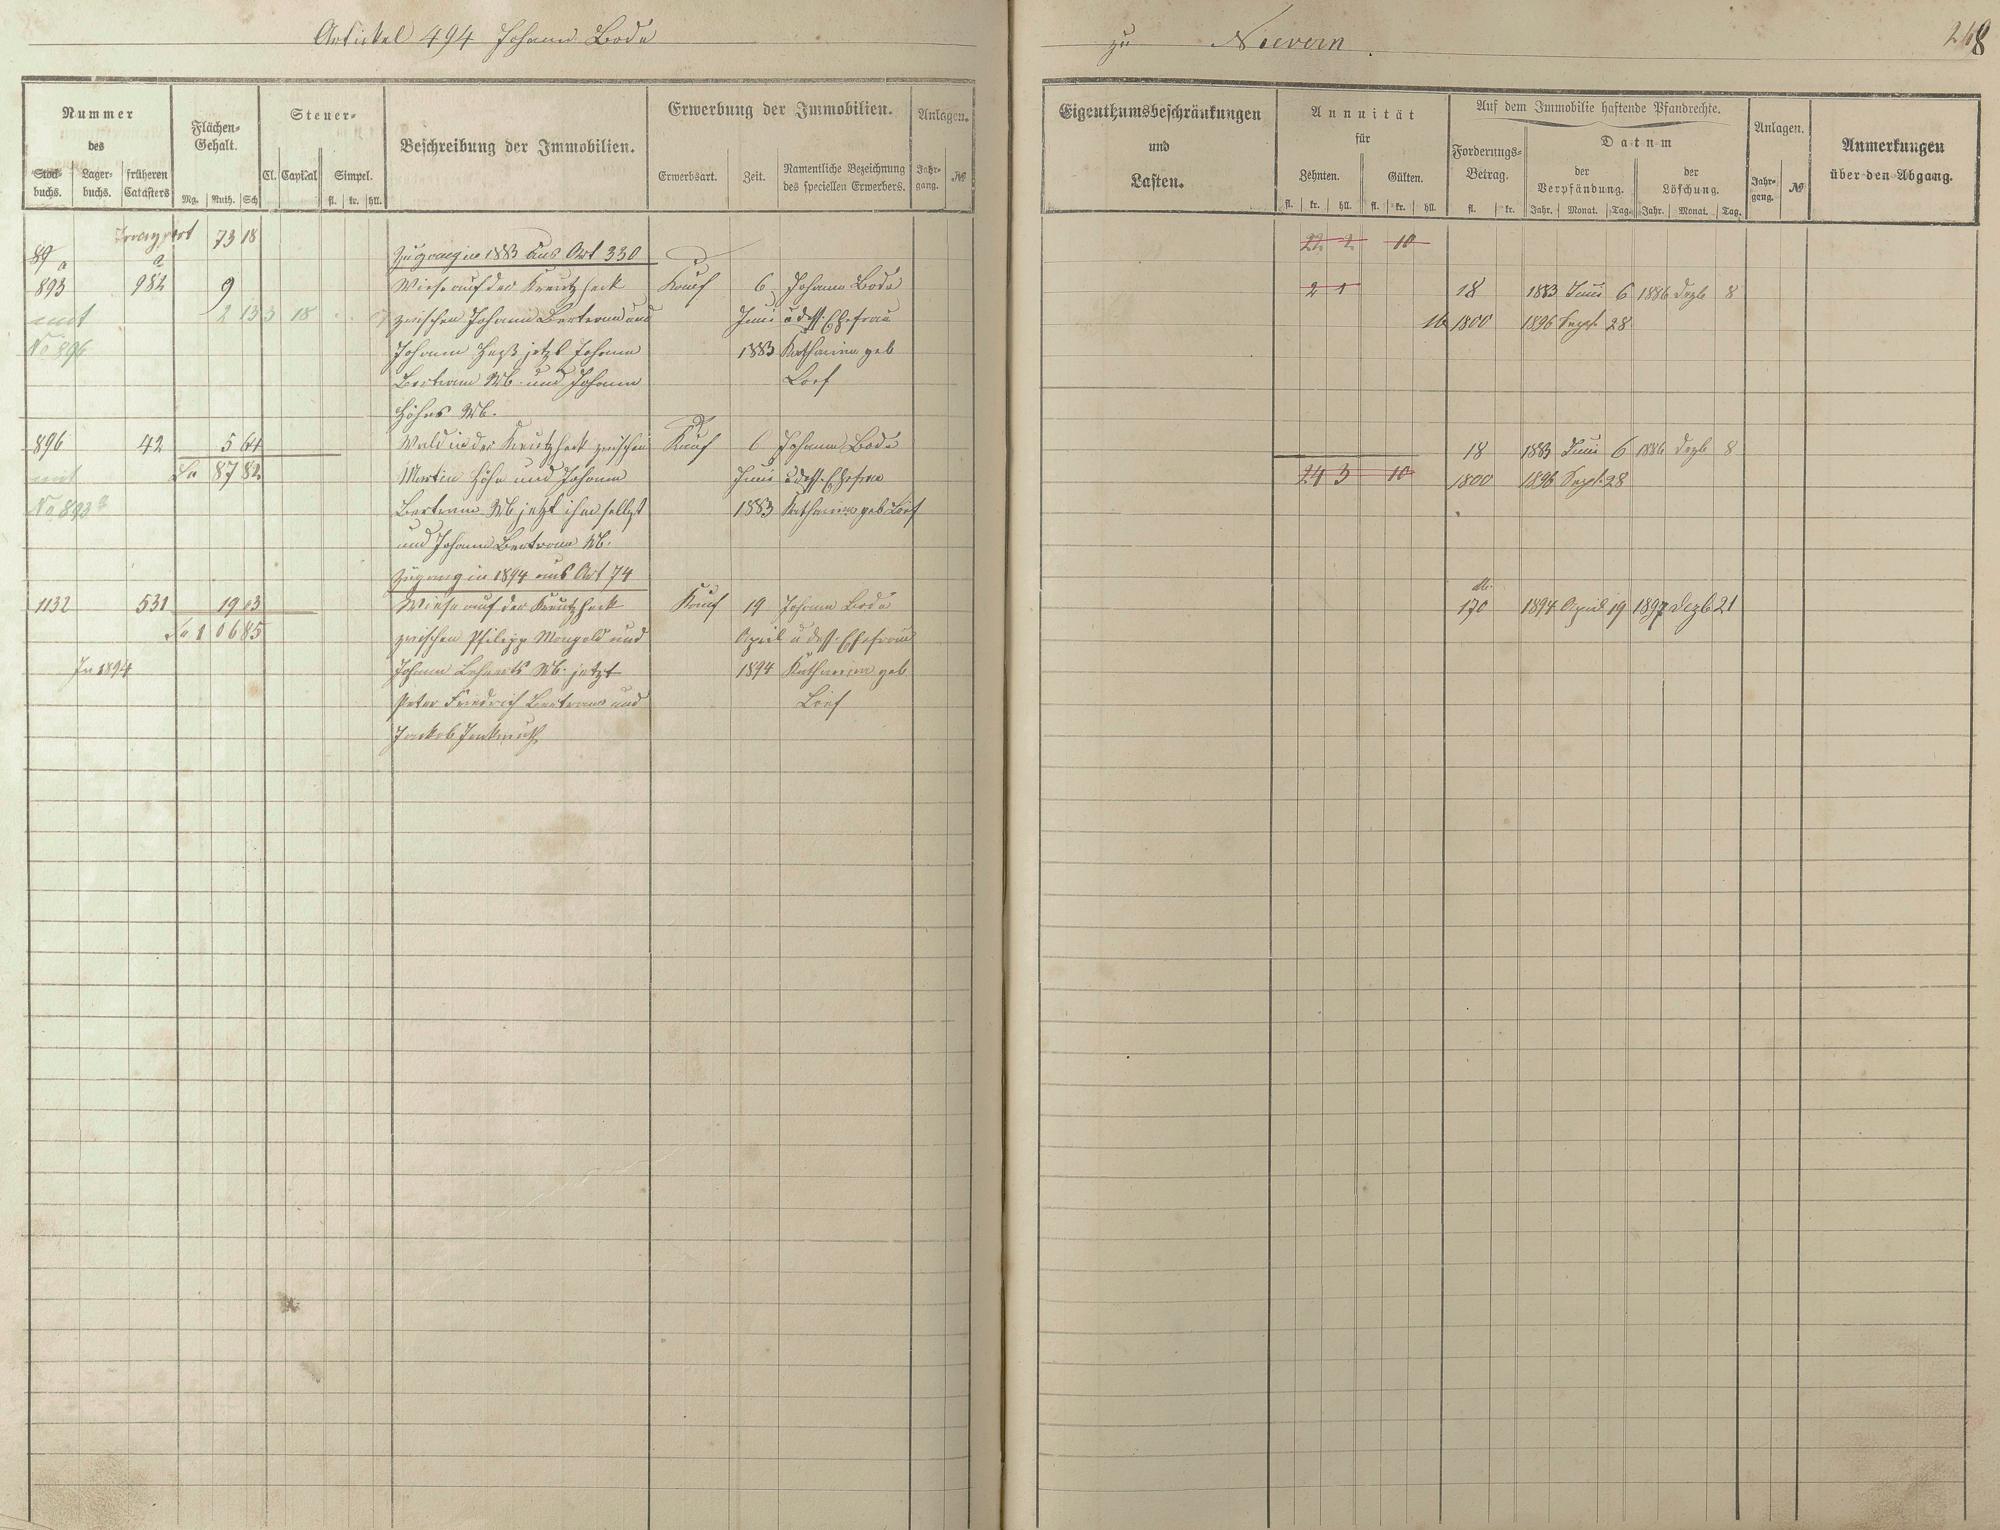 Artikel 494 Johann Bode
zu Nievern.
268
Nummer
des
Stock-
buchs.
Lager-
buchs.
früheren
Catasters
Flächen-
Gehalt.
Mg. Ruth. Sch
Steuer-
Cl. Capital Simpel.
fl. kr. hll.
Beschreibung der Immobilien.
Erwerbung der Immobilien.
Erwerbsart. Zeit. Namentliche Bezeichnung
des speciellen Erwerbers.
Anlagen.
Jahr-
gang. №
Eigenthumsbeschränkungen
und
Lasten.
Annuität
für
Zehnten. Gülten.
fl. kr. hll. fl. kr. hll.
Auf dem Immobilie haftende Pfandrechte.
Forderungs-
Betrag.
fl. kr.
Datum
der
Verpfändung.
der
Löschung.
Jahr. Monat. Tag. Jahr. Monat. Tag.
Anlagen.
Jahr-
gang. №
Anmerkungen
über den Abgang.
Transport 73 18
22 2 10
89 a
Zugang in 1883 aus Art 330
893 982 9 Wiese auf der Kreutzheck Kauf 6 Johann Bode
2 1 18 1883 Juni 6 1886 Dezb 8
mit 2 13 3 18 zwischen Johann Bertram und Juni u dess. Ehefrau
1800 1896 Sept. 28
No 896 Johann Heß jetzt Johann 1883 Katharina geb
Bertram Wb. und Johann Loef
Höhns Wb.
896 42 5 64 Wald in der Kreutzheck zwischen Kauf 6 Johann Bode
18 1883 Juni 6 1886 Dezb 8
mit Sa 87 82 Martin Höhn und Johann Juni u dess. Ehefrau
24 3 10 1800 1896 Sept. 28
No 893 a Bertram Wb jetzt ihm selbst 1883 Katharina geb Loef
und Johann Bertram Wb.
Zugang in 1894 aus Art 74
1132 531 19 03 Wiese auf der Kreutzheck Kauf 19 Johann Bode
170 1894 April 19 1897 Dezb 21
Sa 1 06 85 zwischen Philipp Mangold und April u dess. Ehefrau
In 1894 Johann Lehnerts Wb. jetzt 1894 Katharina geb
Peter Friedrich Bertram und Loef